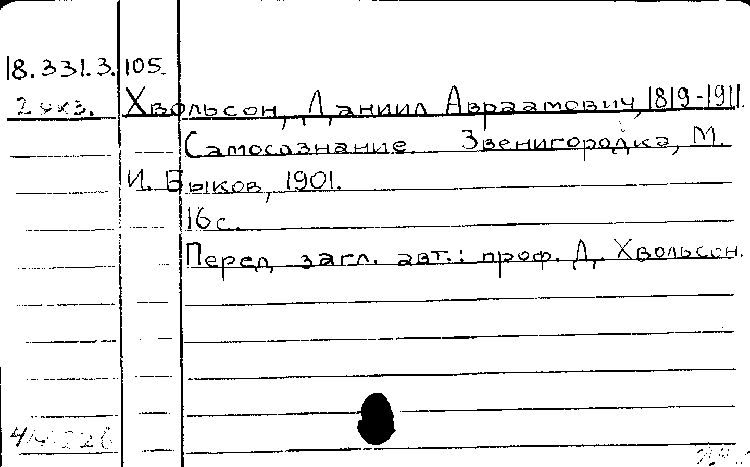 18.331.3.105.
2 экз. Хвольсон, Даниил Авраамович, 1819-1911
Самосознание. Звенигородка, М.
И. Быков, 1901.
16 с.
Перед загл. авт.: проф. Д. Хвольсон.